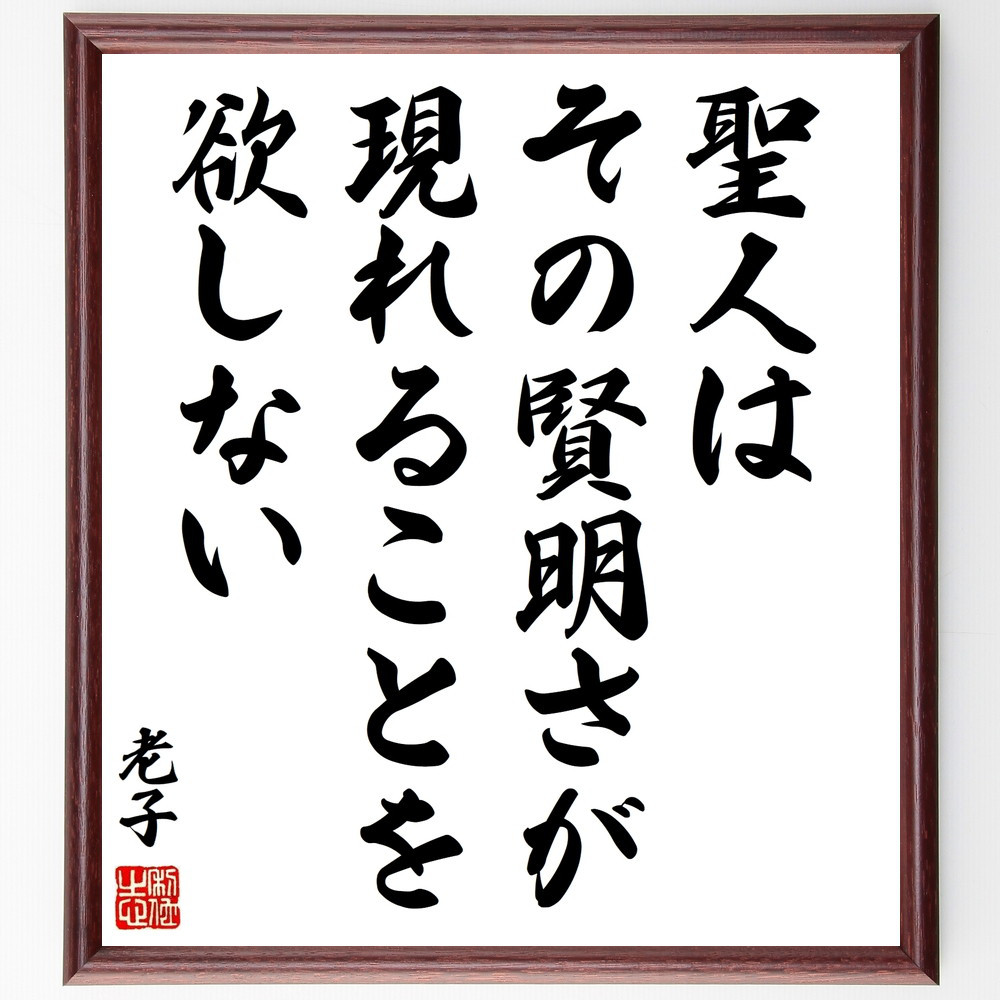 聖人は
その賢明さが
現れることを
欲しない
老子